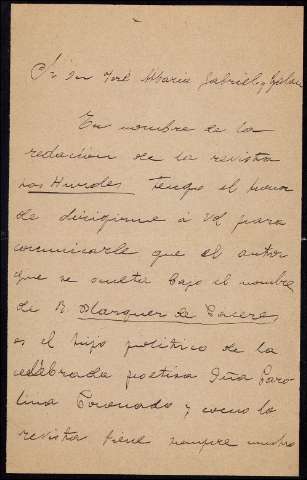 Sr Dn José Maria Gabriel y Galan
En nombre de la
redacción de la revista
Las Hurdes tengo el honor
de dirigirme á Vd para
comunicarle que el autor
que se oculta bajo el nombre
de B. Marquer de Caceres
es el hijo politico de la
celebrada poetisa Dña Caro-
lina Coronado y como la
revista tiene siempre mucho